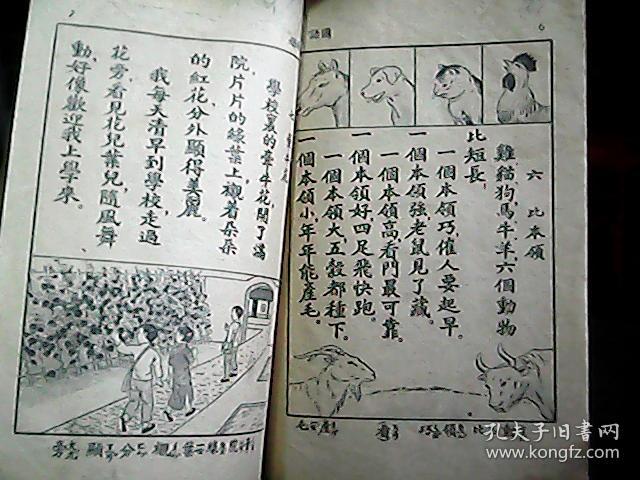 國語
6
六 比本領
雞貓狗,馬牛羊,六個動物
比短長:
一個本領巧,催人要起早。
一個本領強,老鼠見了藏。
一個本領高,看門最可靠。
一個本領好,四足飛快跑。
一個本領大,五穀都種下。
一個本領小,年年能產毛。
比 領 巧 看 產 毛
學校裏的牽牛花,開了滿
院,片片的綠葉上,襯着朵朵
的紅花,分外顯得美麗。
我每天清早到學校,走過
花旁,看見花兒葉兒,隨風舞
動,好像歡迎我上學來。
綠 葉 襯 分 顯 旁
孔夫子旧书网